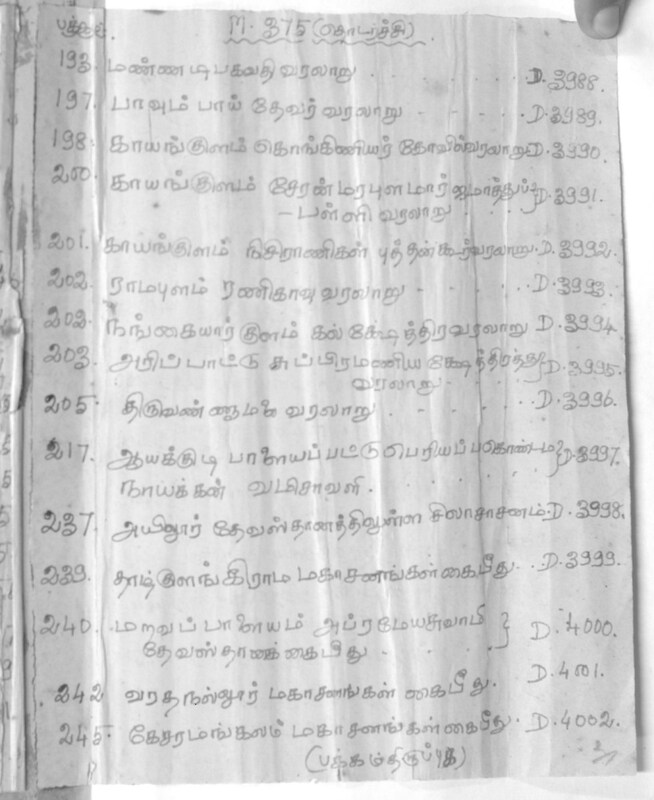 பக்கம் M. 375 (தொடர்ச்சி)
193. மண்ணடிபகவதி வரலாறு . . . . . D. 3988.
197. பாவும் பாய் தேவர் வரலாறு - - - - D. 3989.
198. காயங்குளம் கொங்கிணியர் கோவில்வரலாறு D. 3990.
200. காயங்குளம் சேரன்மரபுளமார் ஜமாத்துப் } D. 3991.
- பள்ளி வரலாறு . . .
201. காயங்குளம் நிசிராணிகள் புத்தன்கூர்வரலாறு. D. 3992.
202. ராமபுளம் ரணிகாவு வரலாறு - - - - D. 3993.
202. நங்கையார்குளம் கல் க்ஷேத்திரவரலாறு D. 3994.
203. அரிப்பாட்டு சுப்பிரமணிய க்ஷேத்திரத்து } D. 3995.
வரலாறு - . . .
205. திருவண்ணாமலை வரலாறு . . . . . D. 3996.
217. ஆயக்குடி பாளையப்பட்டு பெரியப்பகொண்டம } D. 3997.
நாயக்கன் வமிசாவளி . . . . .
237. அயிலூர் தேவஸ்தானத்திலுள்ள சிலாசாசனம் D. 3998.
239. தாழ்குளங்கிராம மகாசனங்கள் கைபீது. . D. 3999.
240. மறவப்பாளையம் அப்ரமேயசுவாமி } D. 4000.
தேவஸ்தான கைபீது . . . .
242 வரதநல்லூர் மகாசனங்கள் கைபீது. D. 4001.
245. கேசரமங்கலம் மகாசனங்கள் கைபீது. D. 4002.
(பக்கம்திருப்புக)